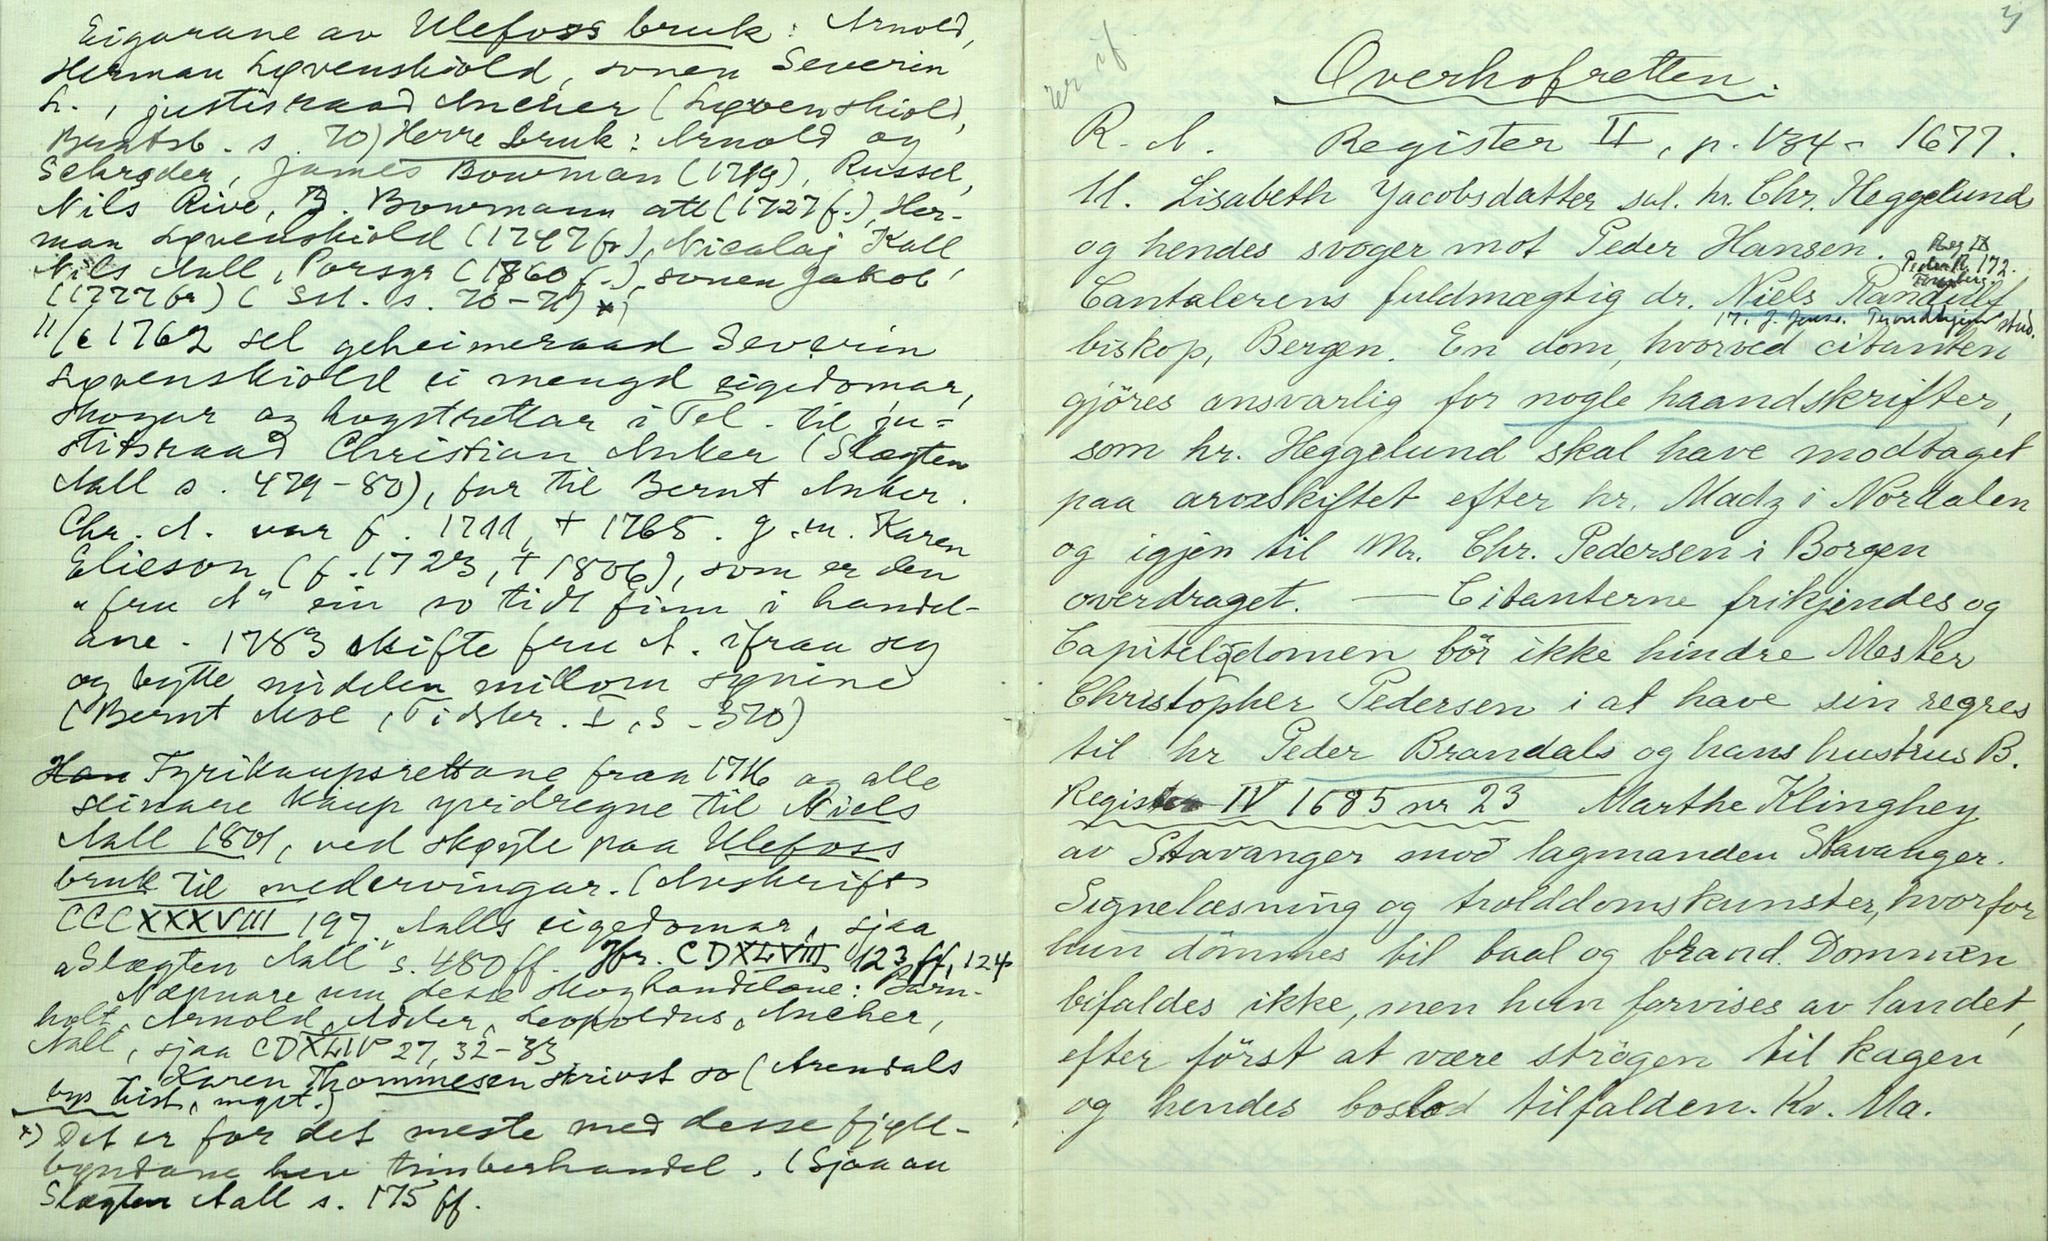 Eigarane av Ulefoss bruk: Arnold,
Herman Løvenskiold, sonen Severin
L., justisraad Ancher (Løvenskiold,
Bratsb. s. 70) Herre bruk: Arnold og
Schrøder, James Bowman (1719), Russel,
Nils Rive, B. Bowmann att (1727 f.), Her-
man Løvenskiold (1747 fr), Nicolaj Kall,
Nils Aall, Porsgr (1760 f.), sonen Jakob
(1777 fr) ( s. 70-71) x)
11/6 1762 sel geheimeraad Severin
Løvenskiold ei mengd eigedomar,
skogar og hogstrettar i Tel. til ju-
stitsraad Christian Anker (Slægten
Aall s. 479-80), far til Bernt Anker.
Chr. A. var f. 1711, † 1765. g. m. Karen
Elieson (f. 1723, † 1806), som er den
"fru A" ein so tidt finn i handel-
ane. 1783 skifte fru A. ifraa seg
og bytte midelen millom sønine
(Bernt Moe, Tidskr. I, s. 370)
Han Fyrikaupsrettane fraa 1716 og alle
seinare kaup yvidregne til Niels
Aall 1801, ved skøyte paa Ulefoss
bruk til medervingar. (Avskrift
CCCXXXVIII 197. Aalls eigedomar, sjaa
"Slægten Aall" s. 480 ff. Jfr. CDXLVIII 123 ff, 124
Næmare um desse skoghandelane:
holt, Arnold, Adeler, Leopoldus, Ancher,
Aall, sjaa CDXLIV 27, 32-33
Karen Thommesen skrivst so (Arendals
bys hist, mgst.)
x) Det er for det meste med desse fjell-
bygdane her timberhandel. (Sjaa au
Slægten Aall s. 175 ff.
Overhofretten.
R. A. Register II, p. 184 - 1677.
M. Lisabeth Jacobsdatter sal. hr. Chr. Heggelund
og hendes svoger mot Peder Hansen.
Reg II
172.
Cantslerens fuldmægtig dr. Niels Randulf
Trondhjem stud.
biskop, Bergen. En dom, hvorved citanten
gjöres ansvarlig for nogle haandskrifter,
som hr. Heggelund skal have modtaget
paa arveskiftet efter hr. Madz i Nordalen
og igjen til Mr. Chr. Pedersen i Borgen
overdraget. — Citanterne frikjendes og
Capitelsdomen bör ikke hindre Mester
Christopher Pedersen i at have sin regres
til hr Peder Brandals og hans hustrus B.
Register IV 1685 nr 23 Marthe Klinghey
av Stavanger mod lagmanden Stavanger.
Signelæsning og trolddomskunster, hvorfor
hun dömmes til baal og brand. Dommen
bifaldes ikke, men hun forvises av landet,
efter först at være strögen til kagen
og hendes boslod tilfalden. Kr. Ma.